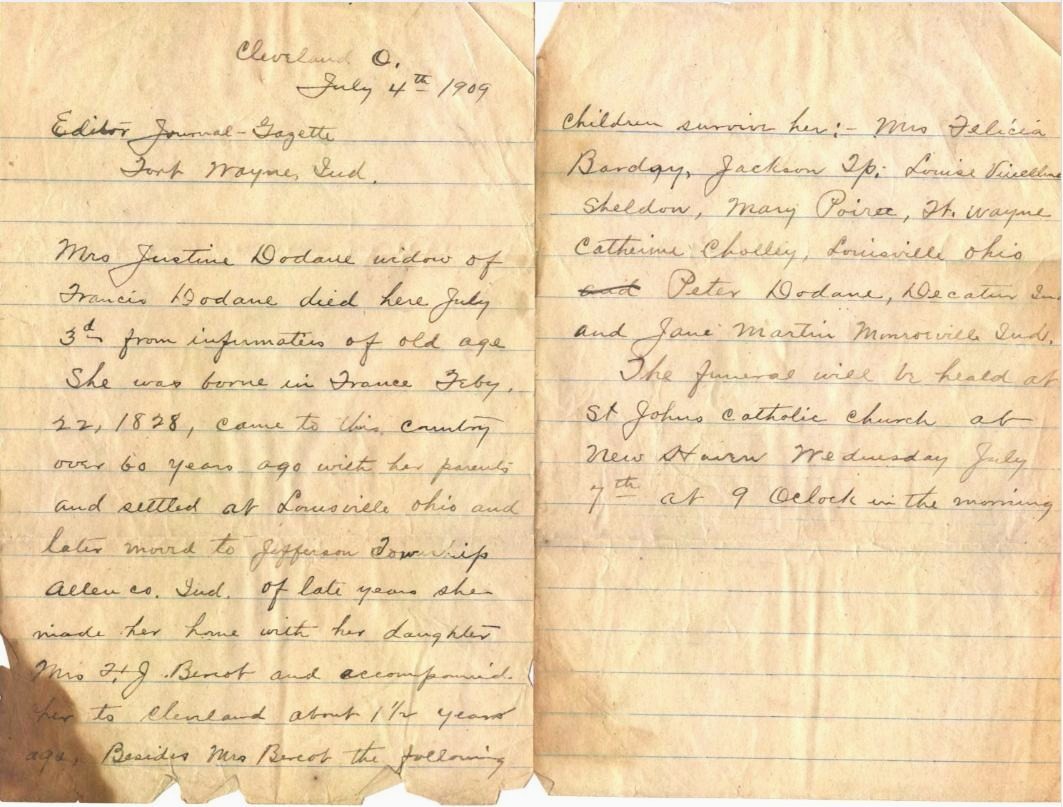 Cleveland O.
July 4th 1909
Editor Journal-Gazette
Fort Wayne, Ind.
Mrs Justine Dodane widow of
Francis Dodane died here July
3d from infirmaties of old age
She was borne in France Feby.
22, 1828, came to this country
over 60 years ago with her parents
and settled at Louisville ohio and
later moved to Jefferson Township
Allen co. Ind. of late years she
made her home with her daughter
Mrs F. J. Bercot and accompanied
her to Cleveland about 1 1/2 years
ago, Besides Mrs Bercot the following
children survive her:- Mrs Felicia
Jackson Tp; Louise
Sheldon, Mary Poiree, Ft. Wayne
Catherine Cholley, Louisville ohio
and Peter Dodane, Decatur In
and Jane Martin Monroeville Ind.
The funeral will be heald at
St Johns catholic church at
New Haven Wednesday July
7th at 9 Oclock in the morning